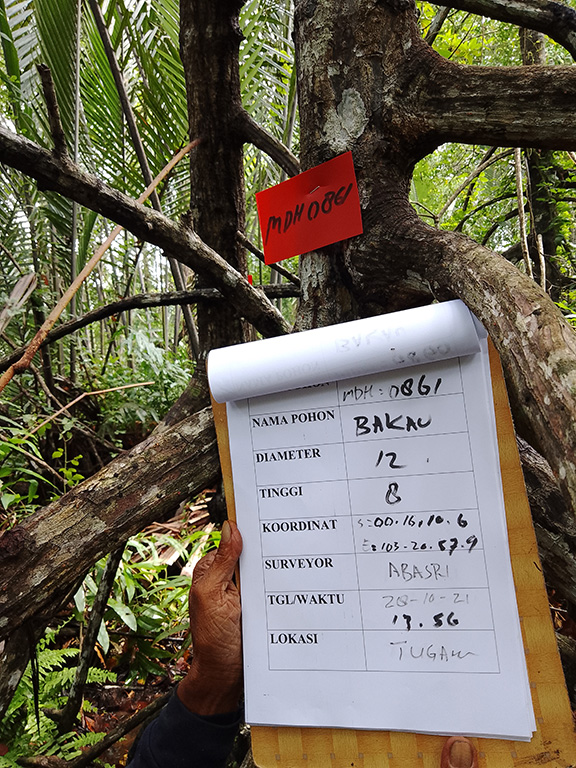 MDH 0861
MDH = 0861
NAMA POHON BAKAU
DIAMETER 12
TINGGI 8
KOORDINAT S = 00.16,10.6
E = 103-20.57.9
SURVEYOR ABASRI
TGL/WAKTU 20-10-21
13.56
LOKASI